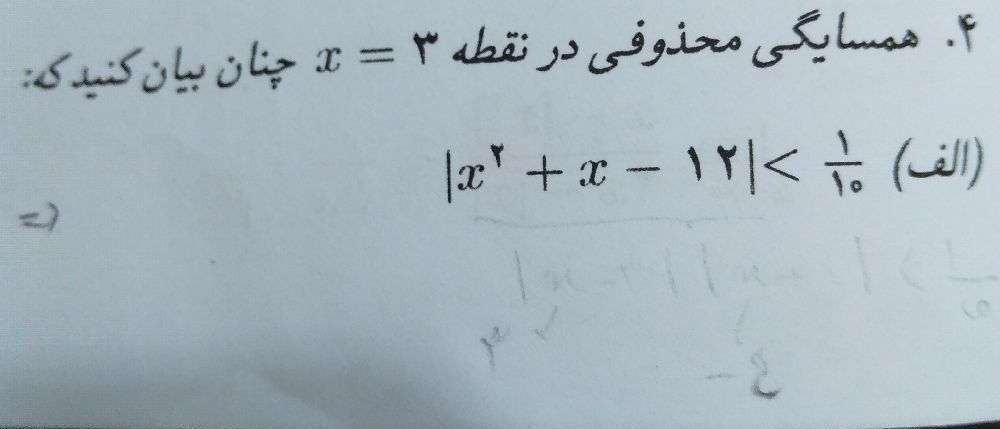 ۴. همسایگی محذوفی در نقطه x = ۳ چنان بیان کنید که:
الف) |x² + x − ۱۲| < ۱/۱۰